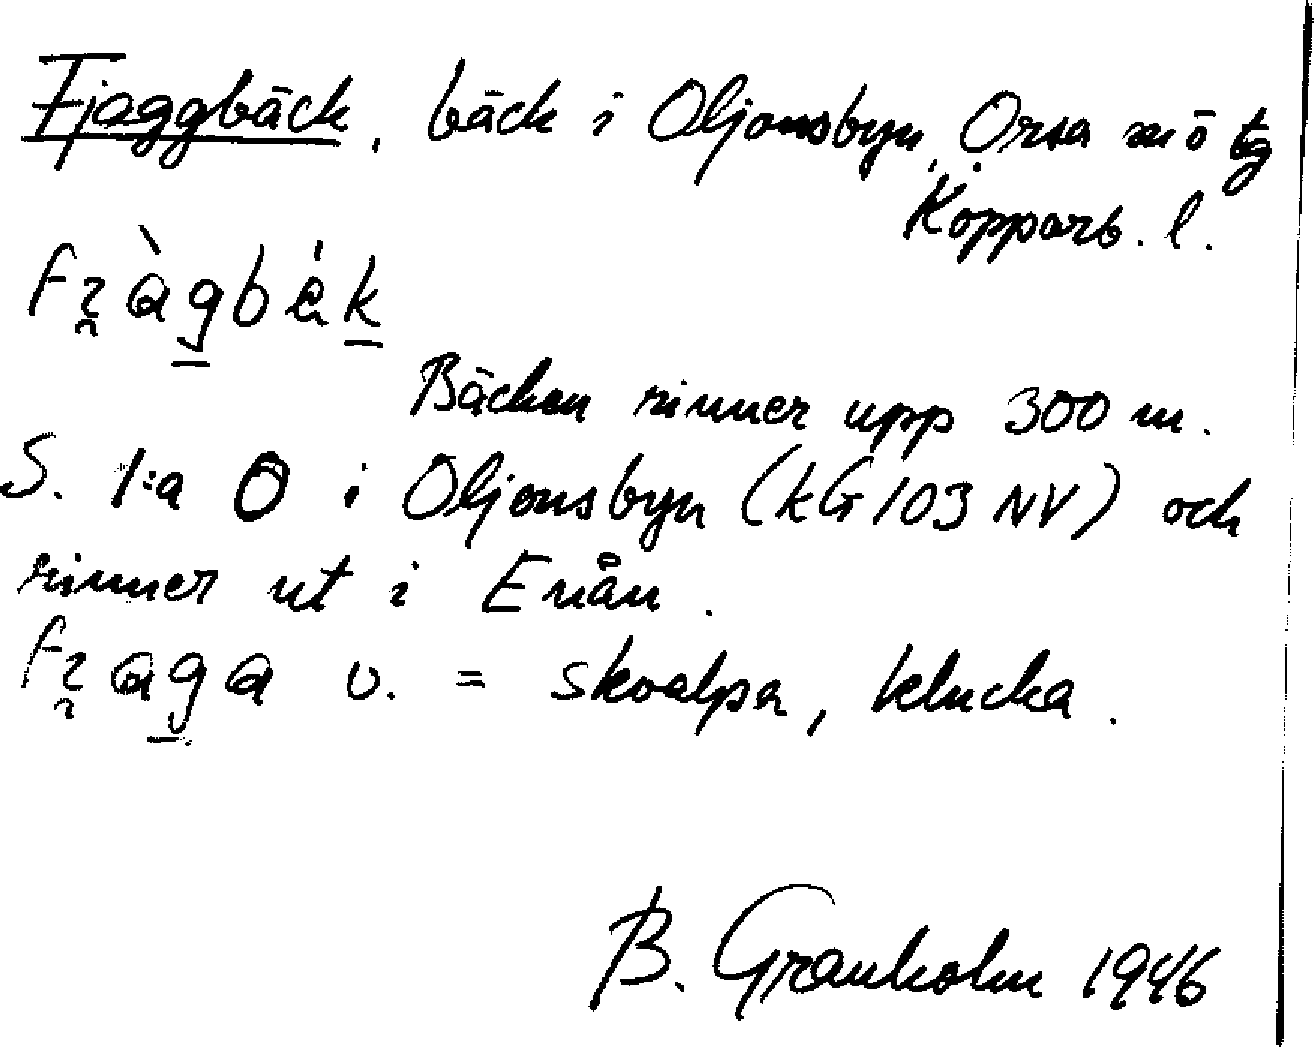 Fjaggbäck, bäck i Oljonsbyn, Orsa sn ö tg
Kopparb. l.
Bäcken rinner upp 300 m.
S. 1:a O i Oljonsbyn (kG 103 NV) och
rinner ut i Enån.
v. = skvalpa, klucka.
B. Granholm 1946